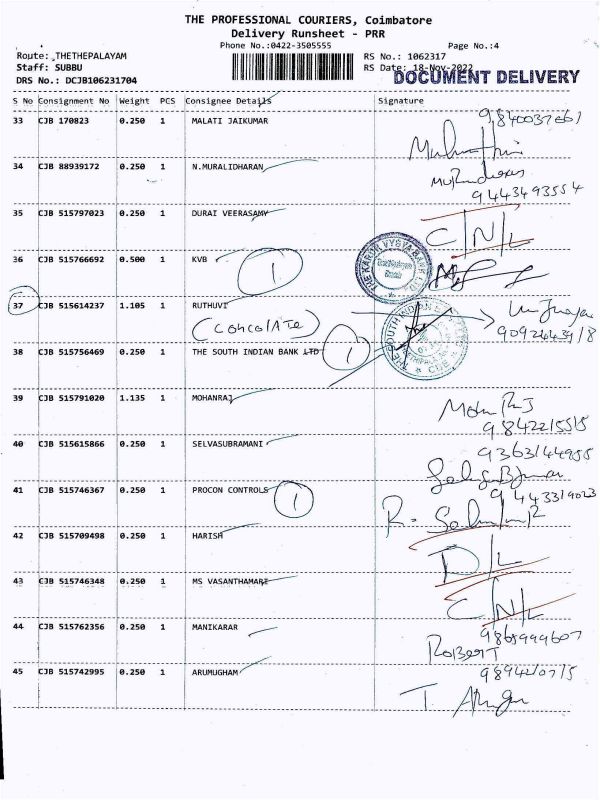 THE PROFESSIONAL COURIERS, Coimbatore
Delivery Runsheet - PRR
Phone No.:0422-3505555
Page No.:4
Route: THETHEPALAYAM
RS No.: 1062317
Staff: SUBBU
RS Date: 18-Nov-2022
DRS No.: DCJB106231704
DOCUMENT DELIVERY
S No Consignment No Weight PCS Consignee Details Signature
33 CJB 170823 0.250 1 MALATI JAIKUMAR
34 CJB 88939172 0.250 1 N.MURALIDHARAN
9443493554
35 CJB 515797023 0.250 1 DURAI VEERASAMY C/N/L
36 CJB 515766692 0.500 1 KVB 1
THE KARUR VYSYA BANK LTD
37 CJB 515614237 1.105 1 RUTHUVI
(CONCOLATE)
38 CJB 515756469 0.250 1 THE SOUTH INDIAN BANK LTD 1
39 CJB 515791020 1.135 1 MOHANRAJ
9842215515
40 CJB 515615866 0.250 1 SELVASUBRAMANI
9363144955
41 CJB 515746367 0.250 1 PROCON CONTROLS 1
9443319023
42 CJB 515709498 0.250 1 HARISH D/L
43 CJB 515746348 0.250 1 MS VASANTHAMARI C/N/L
44 CJB 515762356 0.250 1 MANIKARAR
9865999607
ROBERT
45 CJB 515742995 0.250 1 ARUMUGHAM
9894210715